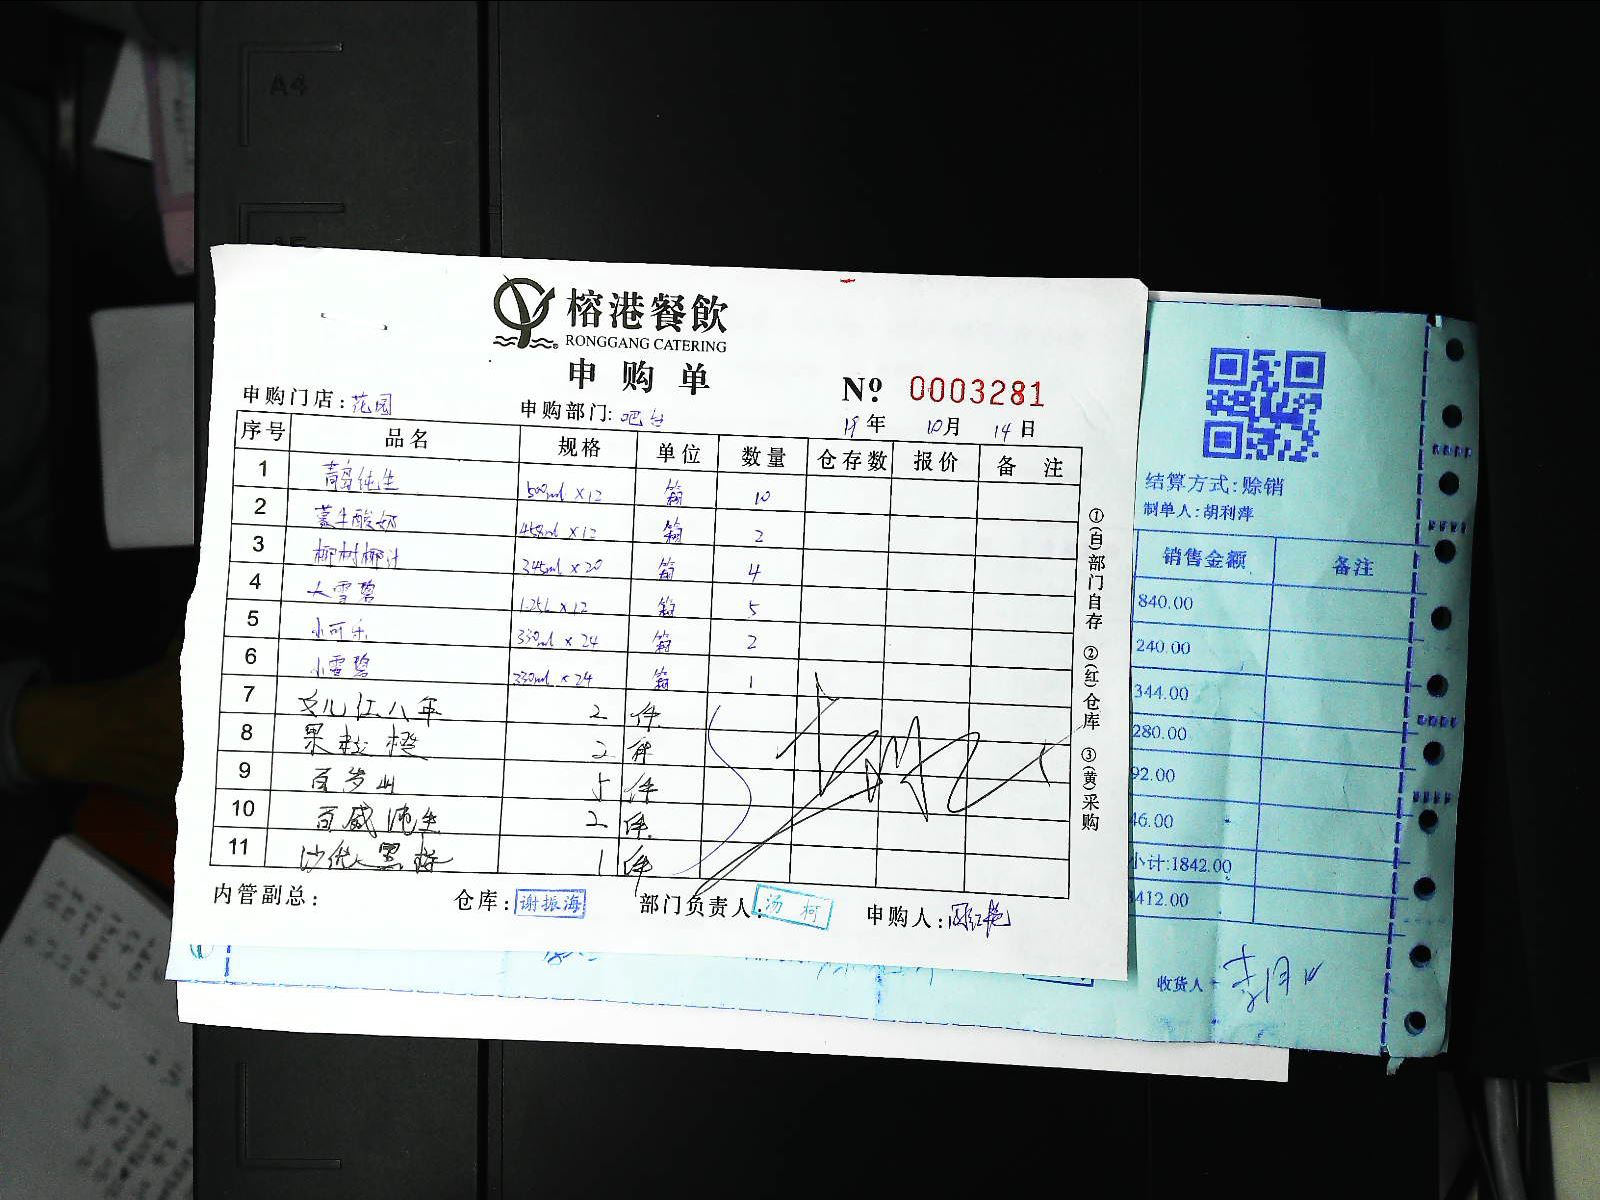 A4
榕港餐飲
RONGGANG CATERING
申购单
№ 0003281
申购门店:花园 申购部门:吧台 19年 10月 14日
序号 品名 规格 单位 数量 仓存数 报价 备注
1 青岛纯生 500ml×12 箱 10
2 蒙牛酸奶 450ml×12 箱 2
3 椰树椰汁 345ml×20 箱 4
4 大雪碧 1.25L×12 箱 5
5 小可乐 330ml×24 箱 2
6 小雪碧 330ml×24 箱 1
7 女儿红八年 2 件
8 果粒橙 2 件
9 百岁山 5 件
10 百威纯生 2 件
11 沙优黑标 1 件
内管副总: 仓库:谢振海 部门负责人:汤柯 申购人:
①(白)部门自存 ②(红)仓库 ③(黄)采购
结算方式:赊销
制单人:胡利萍
销售金额 备注
840.00
240.00
344.00
280.00
92.00
46.00
小计:1842.00
3412.00
收货人